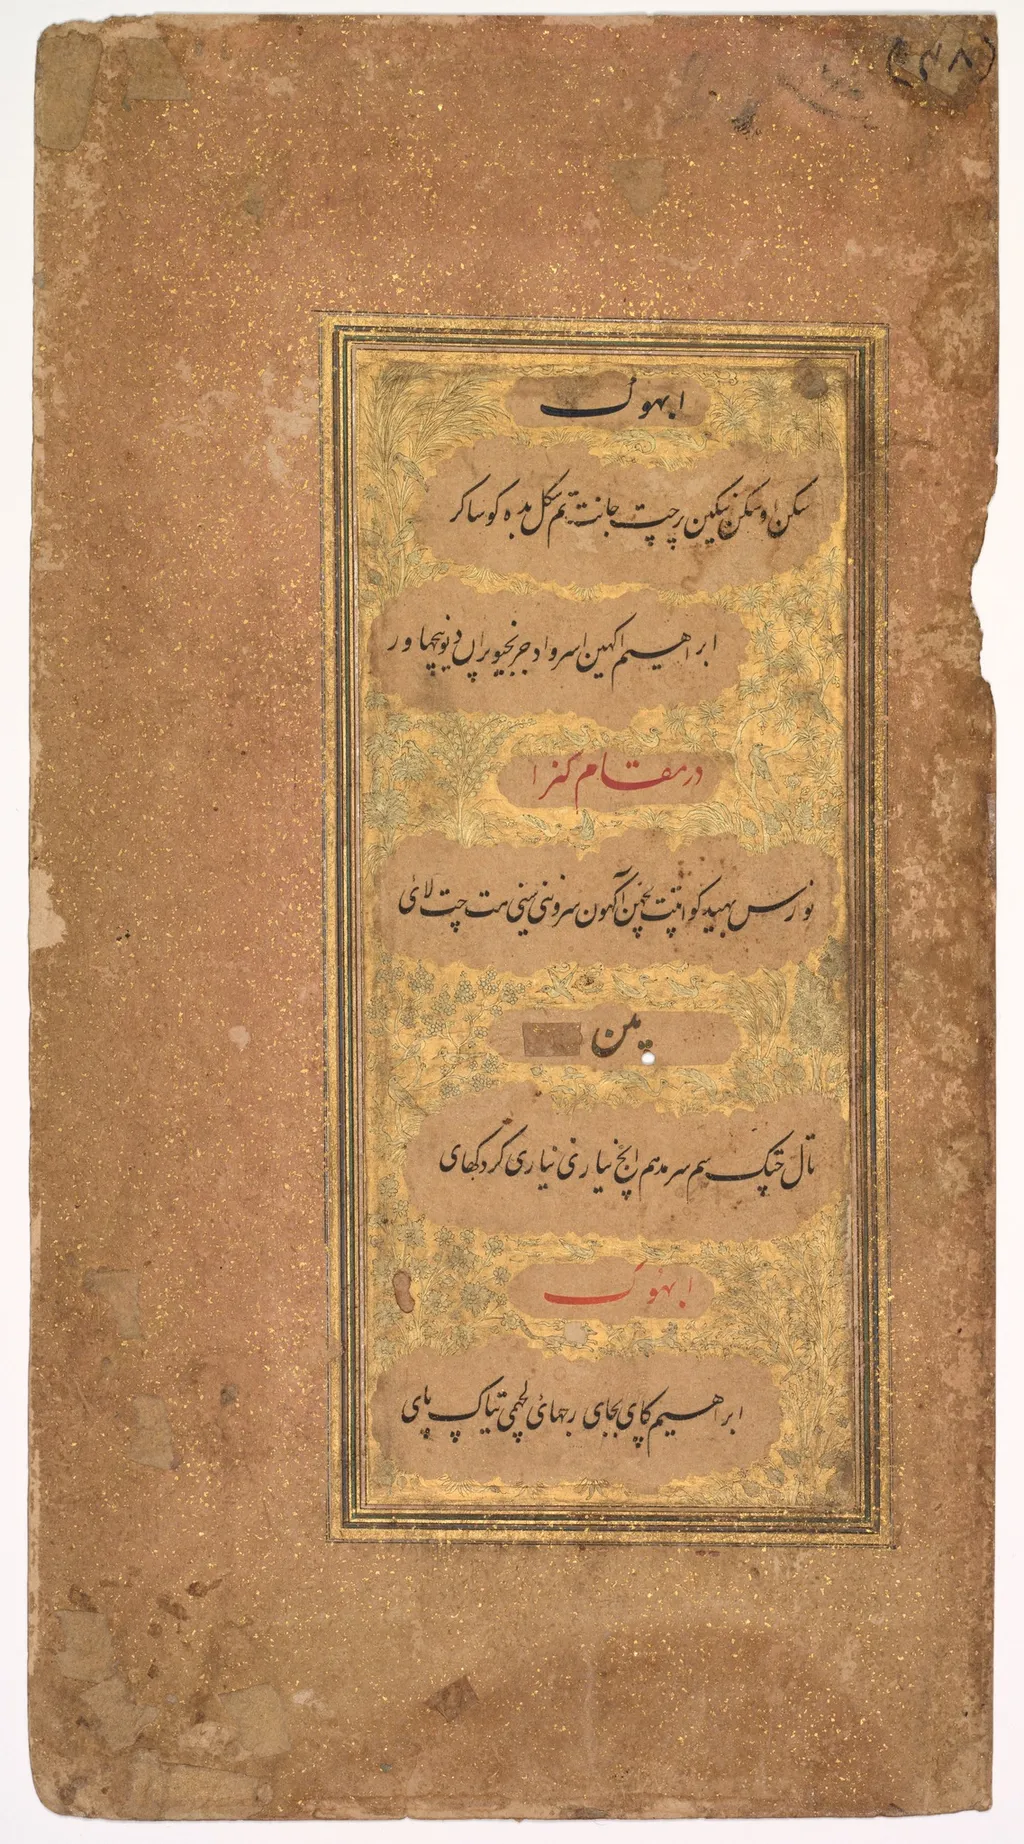 ابهوگ
سکن اوسکن نیکین رچپت جانت تم سکل مده کوساکر
ابراهیم اکهین اسرواد جرنجیو پران دیو نچهاور
در مقام کنرا
نورس بهید کو انپت آکهون سرونی سنی مت چت لائ
بین
تال سم سر مدهم نیاری نیاری کر دکهای
ابهوگ
ابراهیم کای بجای رجهائ لچهمی تیاک پای